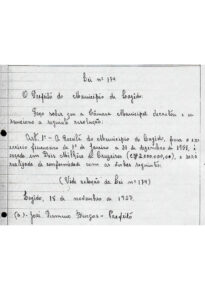 Lei nº 174
O Prefeito do Município de Lagêdo.
Faço saber que a Câmara Municipal decretou e eu
sanciono a seguinte resolução:
Art. 1º - A Receita do Município de Lagêdo, para o ex-
ercício financeiro de 1º de Janeiro a 31 de dezembro de 1958, é
orçada em Dois Milhões de Cruzeiros (Cr$ 2.000.000,00), e será
realizada de conformidade com as verbas seguintes:
(Vide relação da Lei nº 174)
Lagêdo, 18 de novembro de 1957.
(a.) - José Burgos - Prefeito